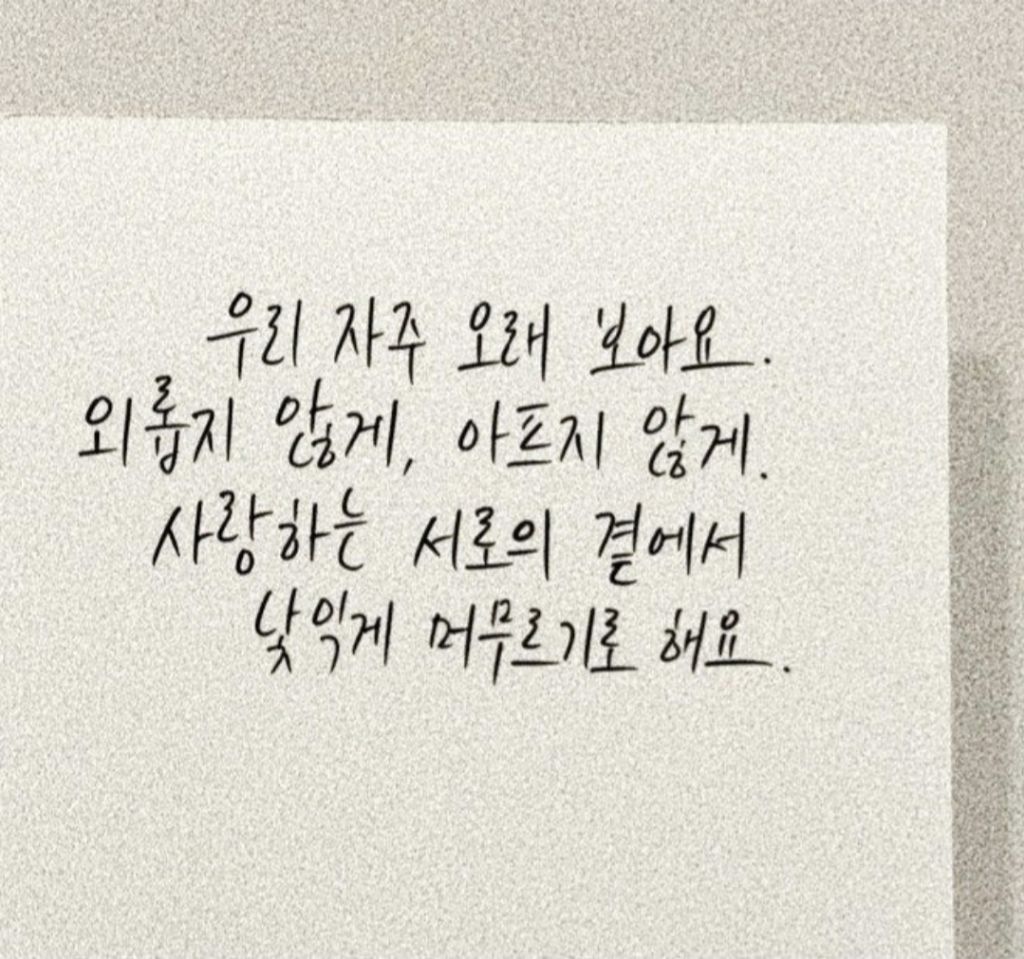 우리 자주 오래 보아요.
외롭지 않게, 아프지 않게.
사랑하는 서로의 곁에서
낯익게 머무르기로 해요.